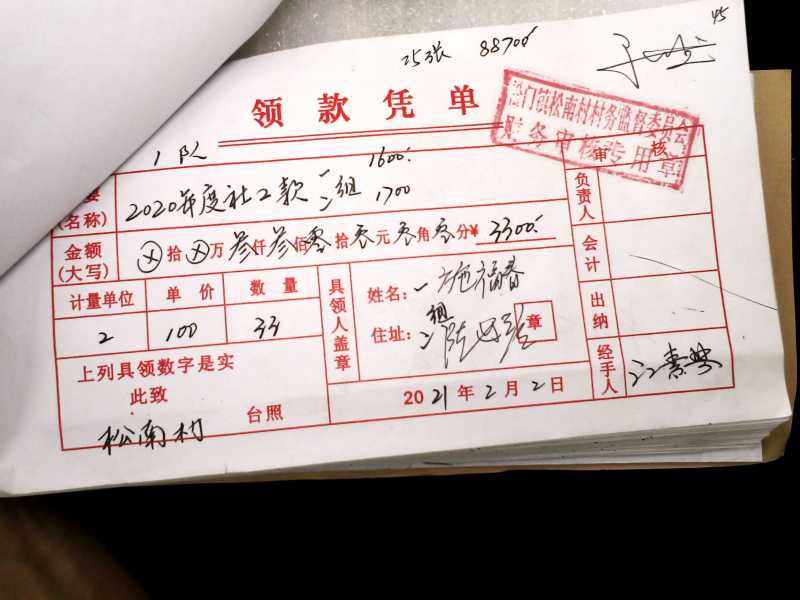 45
25张 88700.
领款凭单
门镇松南村村务监督委员会
财务审核专用章
1队
审核
要
(名称)
2020年度社工款 一组 1600.
二 1700
金额
(大写)
⊗拾⊗万叁仟叁佰零拾零元零角零分¥ 3300.
计量单位 单价 数量
2 100 33
具领人盖章
姓名: 一组 施福春
住址: 二 陆
章
上列具领数字是实
此致
松南村 台照
2021年2月2日
负责人
会计
出纳
经手人